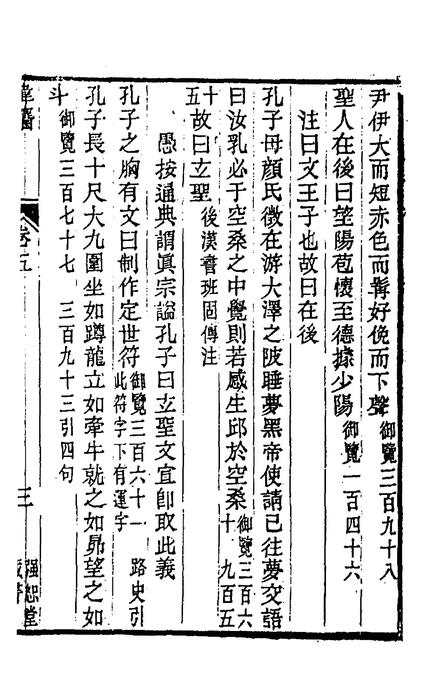 尹伊大而短赤色而髯好俛而下聲御覽三百九十八
聖人在後曰望陽苞懷至德據少陽御覽一百四十六
注曰文王子也故曰在後
孔子母顏氏徵在游大澤之陂睡夢黑帝使請已往夢交語
曰汝乳必于空桑之中覺則若感生邱於空桑御覽三百六十 九百五
十五故曰玄聖後漢書班固傳注
愚按通典謂眞宗謚孔子曰玄聖文宣卽取此義
孔子之胸有文曰制作定世符御覽三百六十一 路史引此符字下有運字
孔子長十尺大九圍坐如蹲龍立如牽牛就之如昴望之如
斗御覽三百七十七 三百九十三引四句
卷五
三
强恕堂